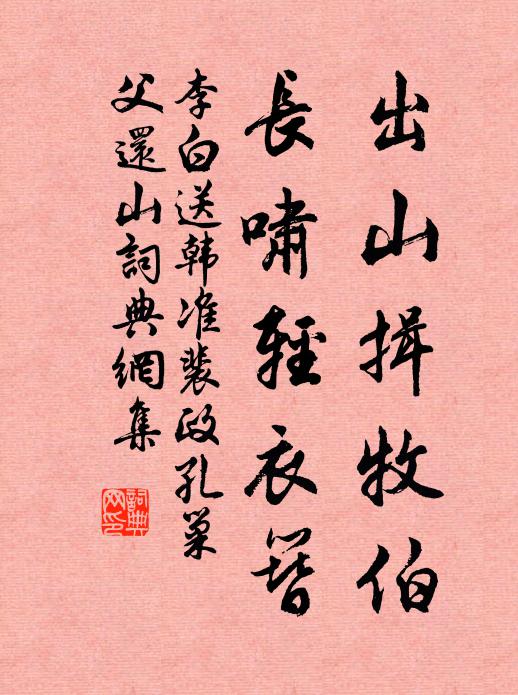 出山揖牧伯
長嘯輕衣簪
李白送韩准裴政孔巢
父還山詞典網集
詞典
网印